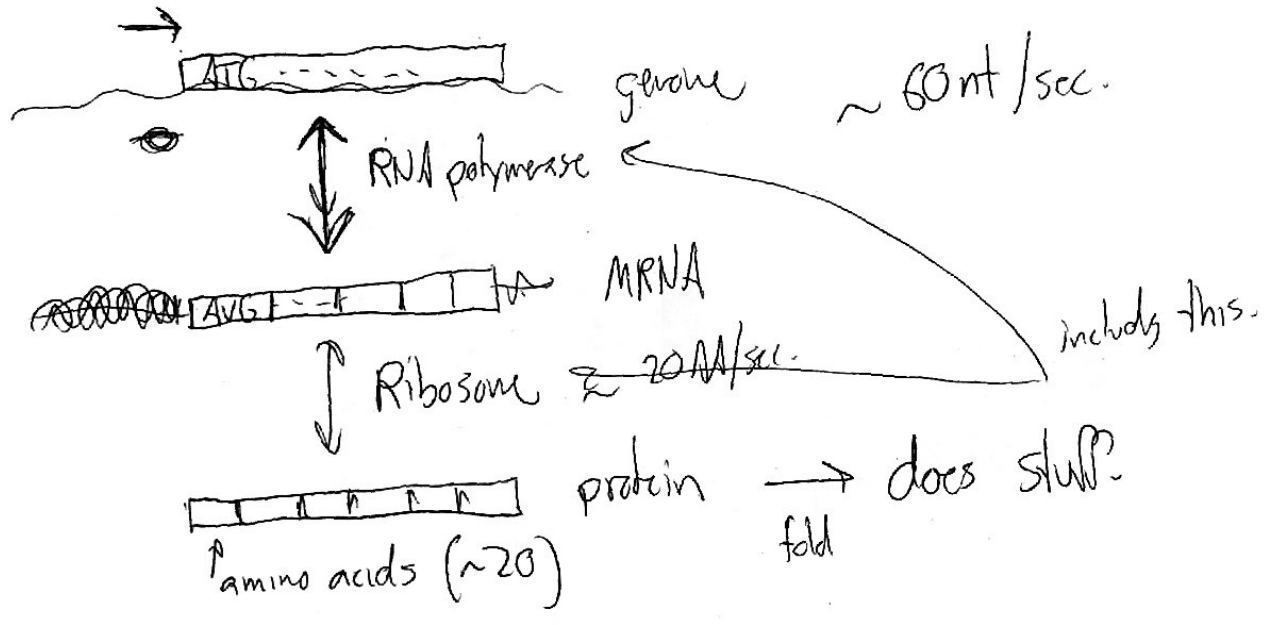 ATG
genome ~ 60 nt/sec.
RNA polymerase
AUG
mRNA
includes this.
Ribosome ≈ 20 AA/sec.
protein → does stuff.
fold
amino acids (~20)